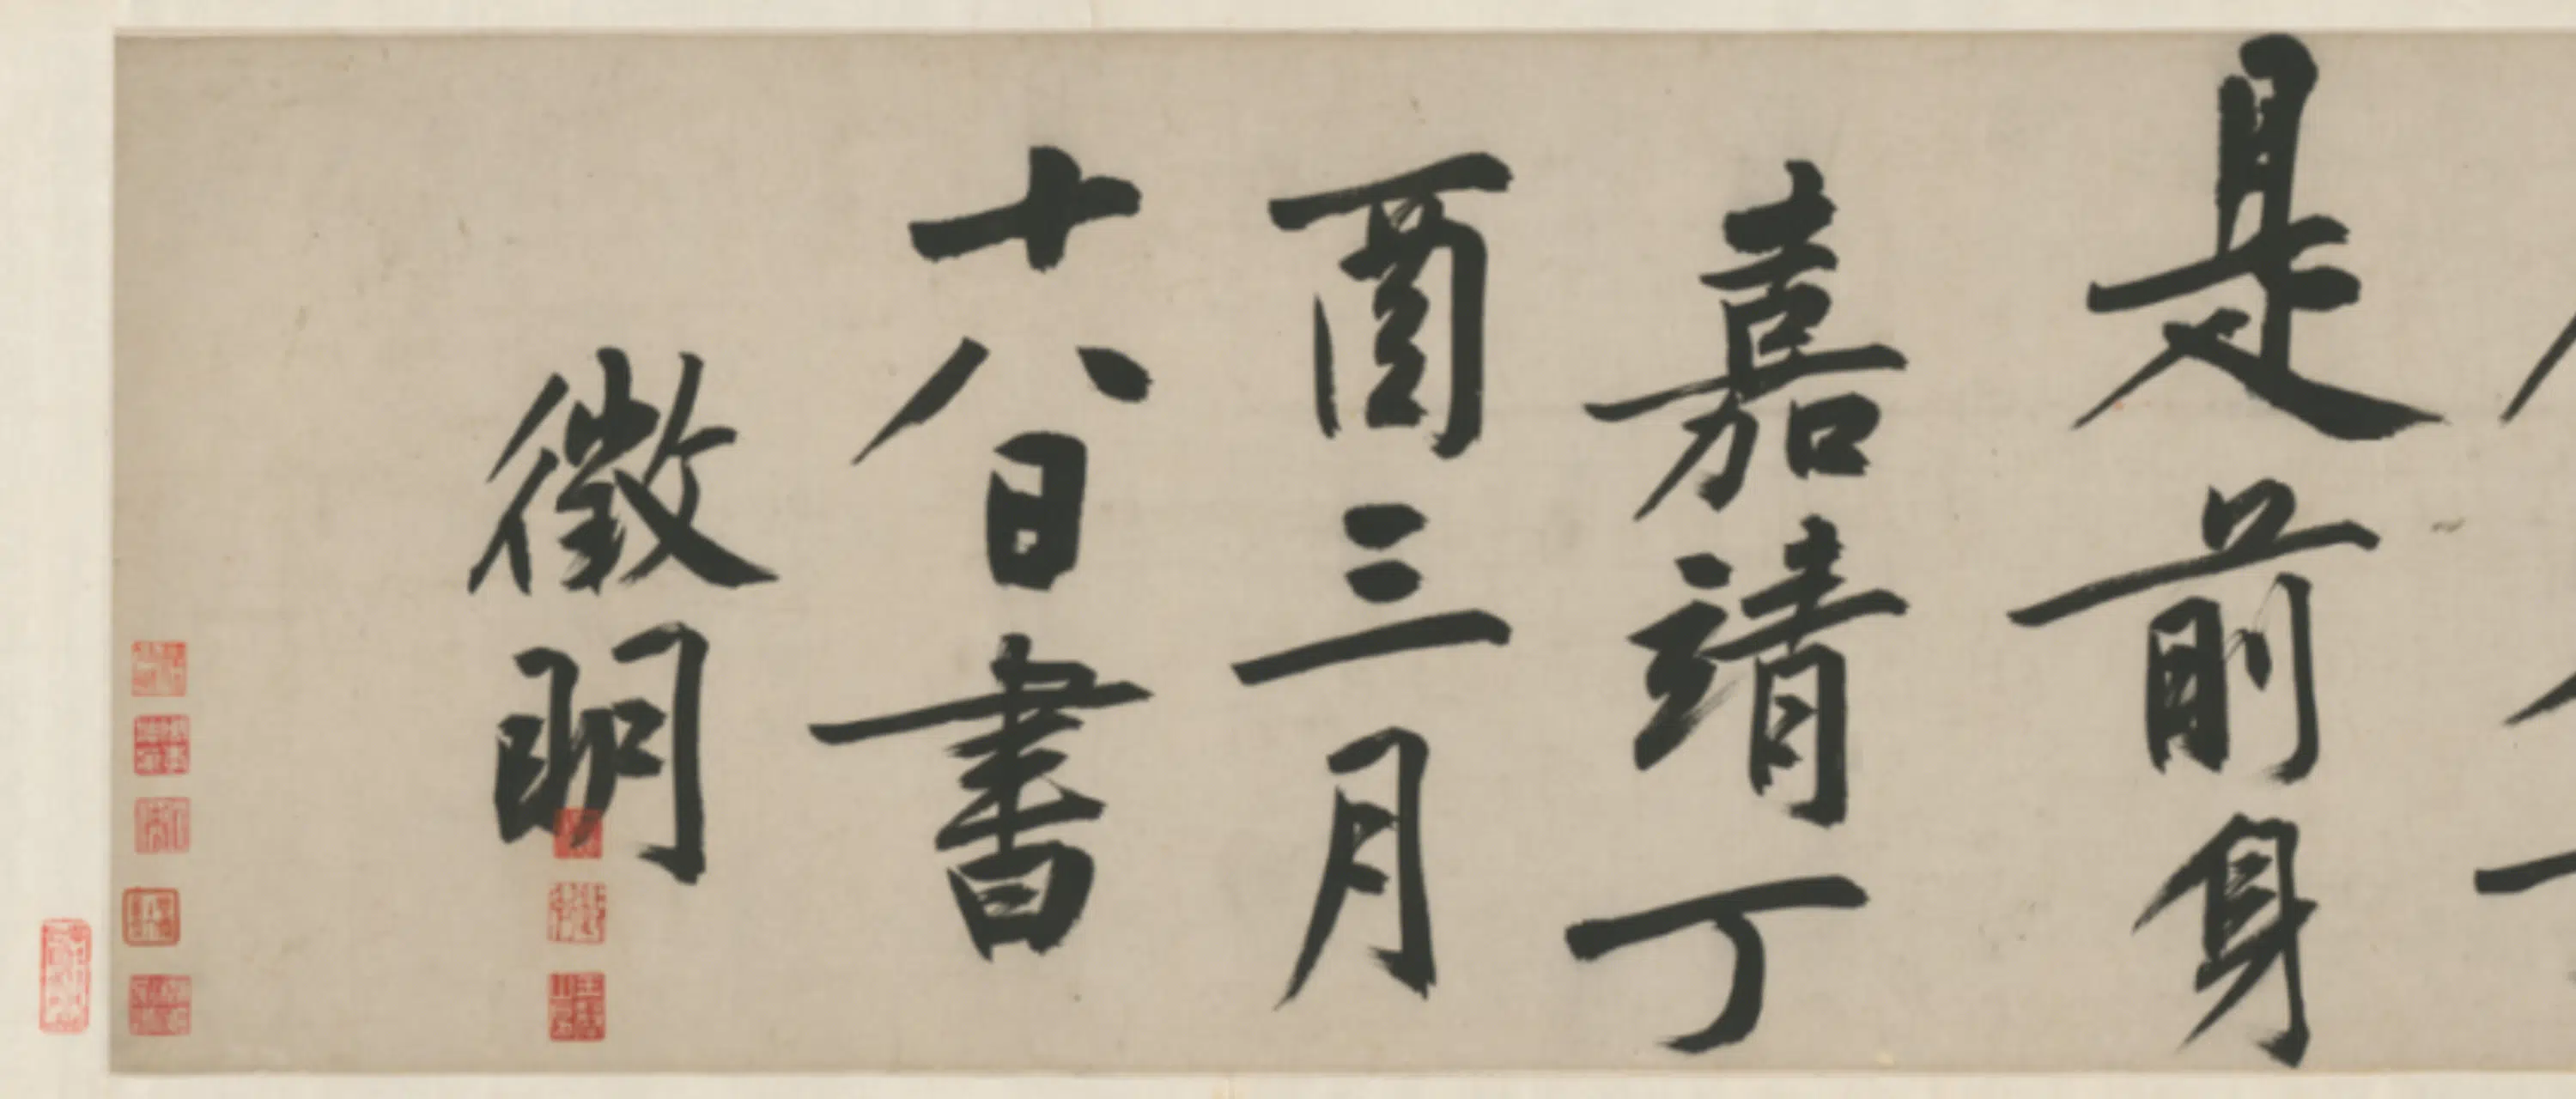 是前身
嘉靖丁
酉三月
十八日書
徵明